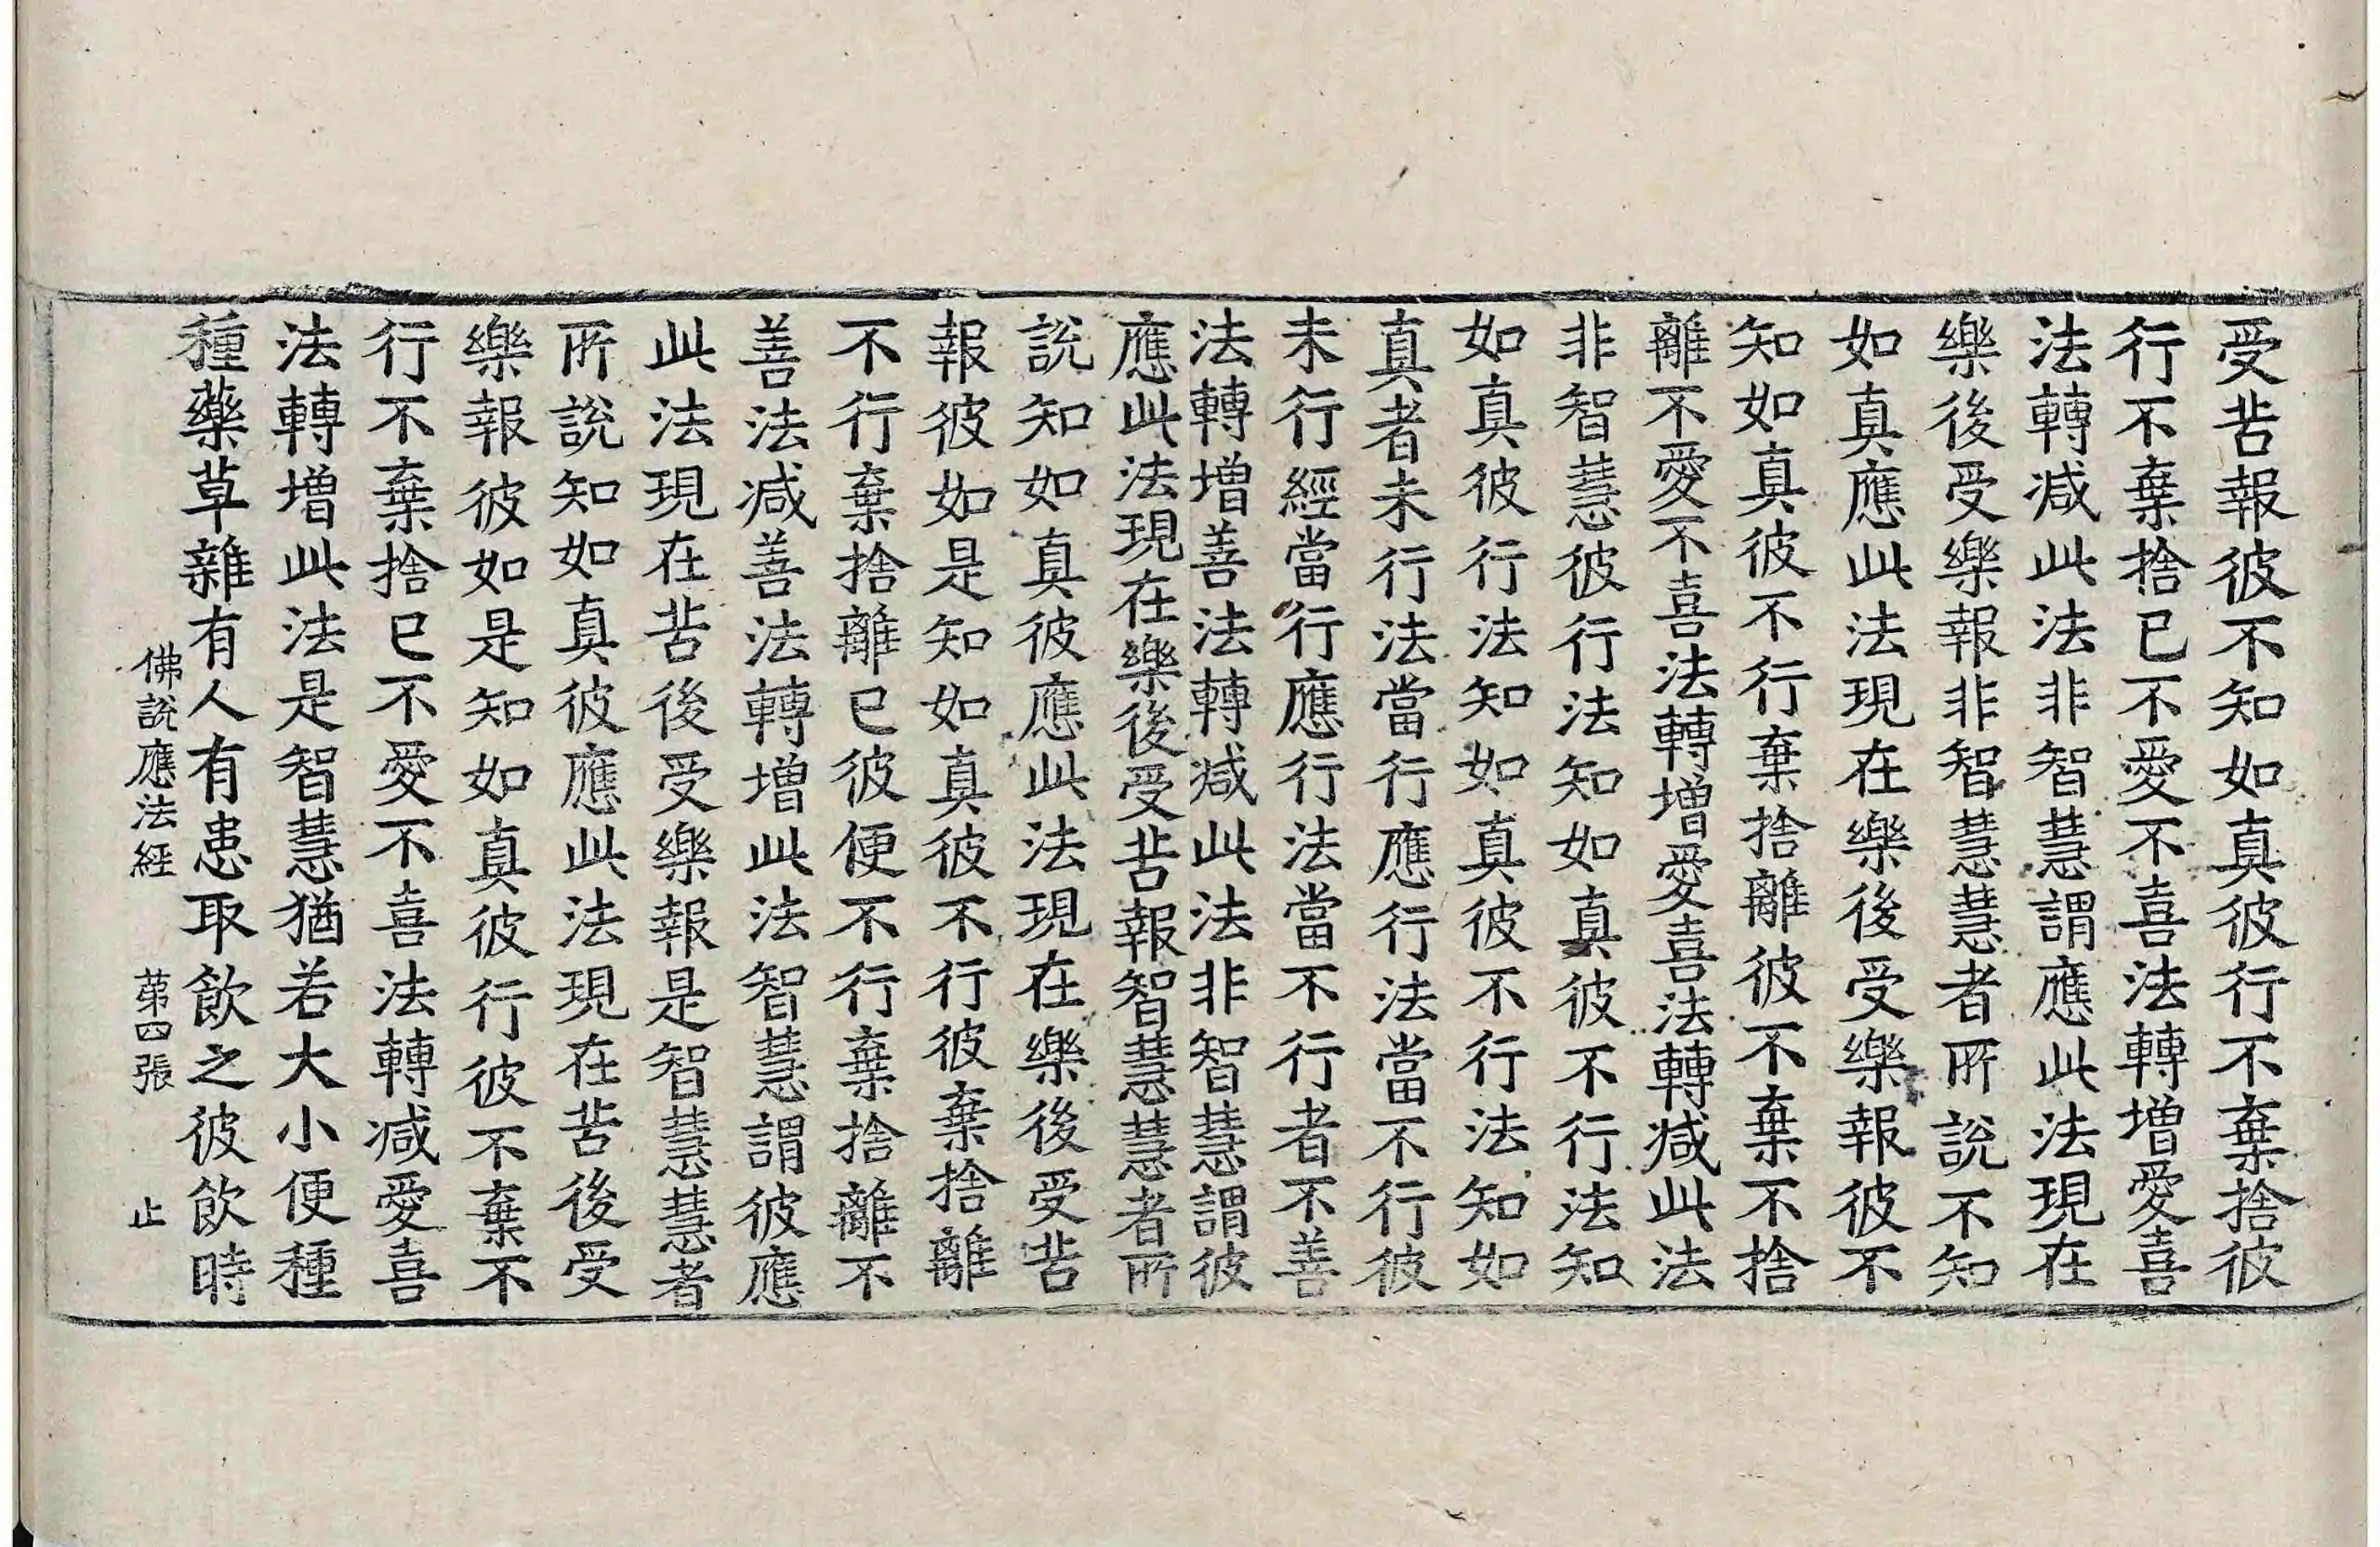 受苦報彼不知如真彼行不棄捨彼
行不棄捨已不愛不喜法轉增愛喜
法轉減此法非智慧謂應此法現在
樂後受樂報非智慧慧者所說不知
如真應此法現在樂後受樂報彼不
知如真彼不行棄捨離彼不棄不捨
離不愛不喜法轉增愛喜法轉減此法
非智慧彼行法知如真彼不行法知
如真彼行法知如真彼不行法知如
真者未行法當行應行法當不行彼
未行經當行應行法當不行者不善
法轉增善法轉減此法非智慧謂彼
應此法現在樂後受苦報智慧慧者所
說知如真彼應此法現在樂後受苦
報彼如是知如真彼不行彼棄捨離
不行棄捨離已彼便不行棄捨離不
善法減善法轉增此法智慧謂彼應
此法現在苦後受樂報是智慧慧者
所說知如真彼應此法現在苦後受
樂報彼如是知如真彼行彼不棄不
行不棄捨已不愛不喜法轉減愛喜
法轉增此法是智慧猶若大小便種
種藥草雜有人有患取飲之彼飲時
佛說應法經 苐四張 止